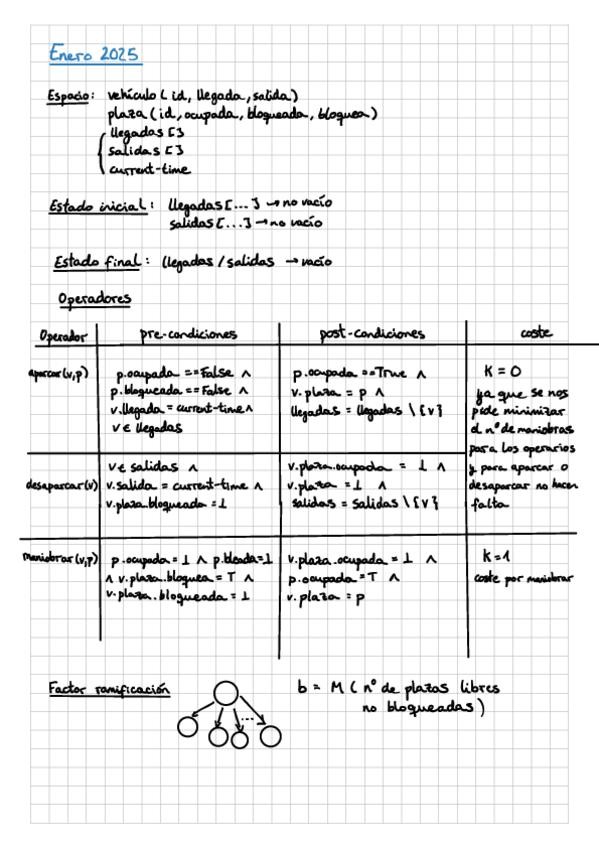 Enero 2025
Espacio: vehículo (id, llegada, salida)
plaza (id, ocupada, bloqueada, bloquea)
llegadas []
salidas []
current-time
Estado inicial: llegadas [...] → no vacío
salidas [...] → no vacío
Estado final: llegadas / salidas → vacío
Operadores
Operador pre-condiciones post-condiciones coste
aparcar (v,p) p.ocupada == False ∧ p.ocupada == True ∧ K = 0
p.bloqueada == False ∧ v.plaza = p ∧ ya que se nos
v.llegada = current-time ∧ llegadas = llegadas \ {v} pide minimizar
v ∈ llegadas el nº de maniobras
para los operarios
v ∈ salidas ∧ v.plaza.ocupada = ⊥ ∧ y para aparcar o
desaparcar (v) v.salida = current-time ∧ v.plaza = ⊥ ∧ desaparcar no hacen
v.plaza.bloqueada = ⊥ salidas = salidas \ {v} falta
maniobrar (v,p) p.ocupada = ⊥ ∧ p.bloada = ⊥ v.plaza.ocupada = ⊥ ∧ K = 1
∧ v.plaza.bloquea = T ∧ p.ocupada = T ∧ coste por maniobrar
v.plaza.bloqueada = ⊥ v.plaza = p
Factor ramificación b = M (nº de plazas libres
... no bloqueadas)